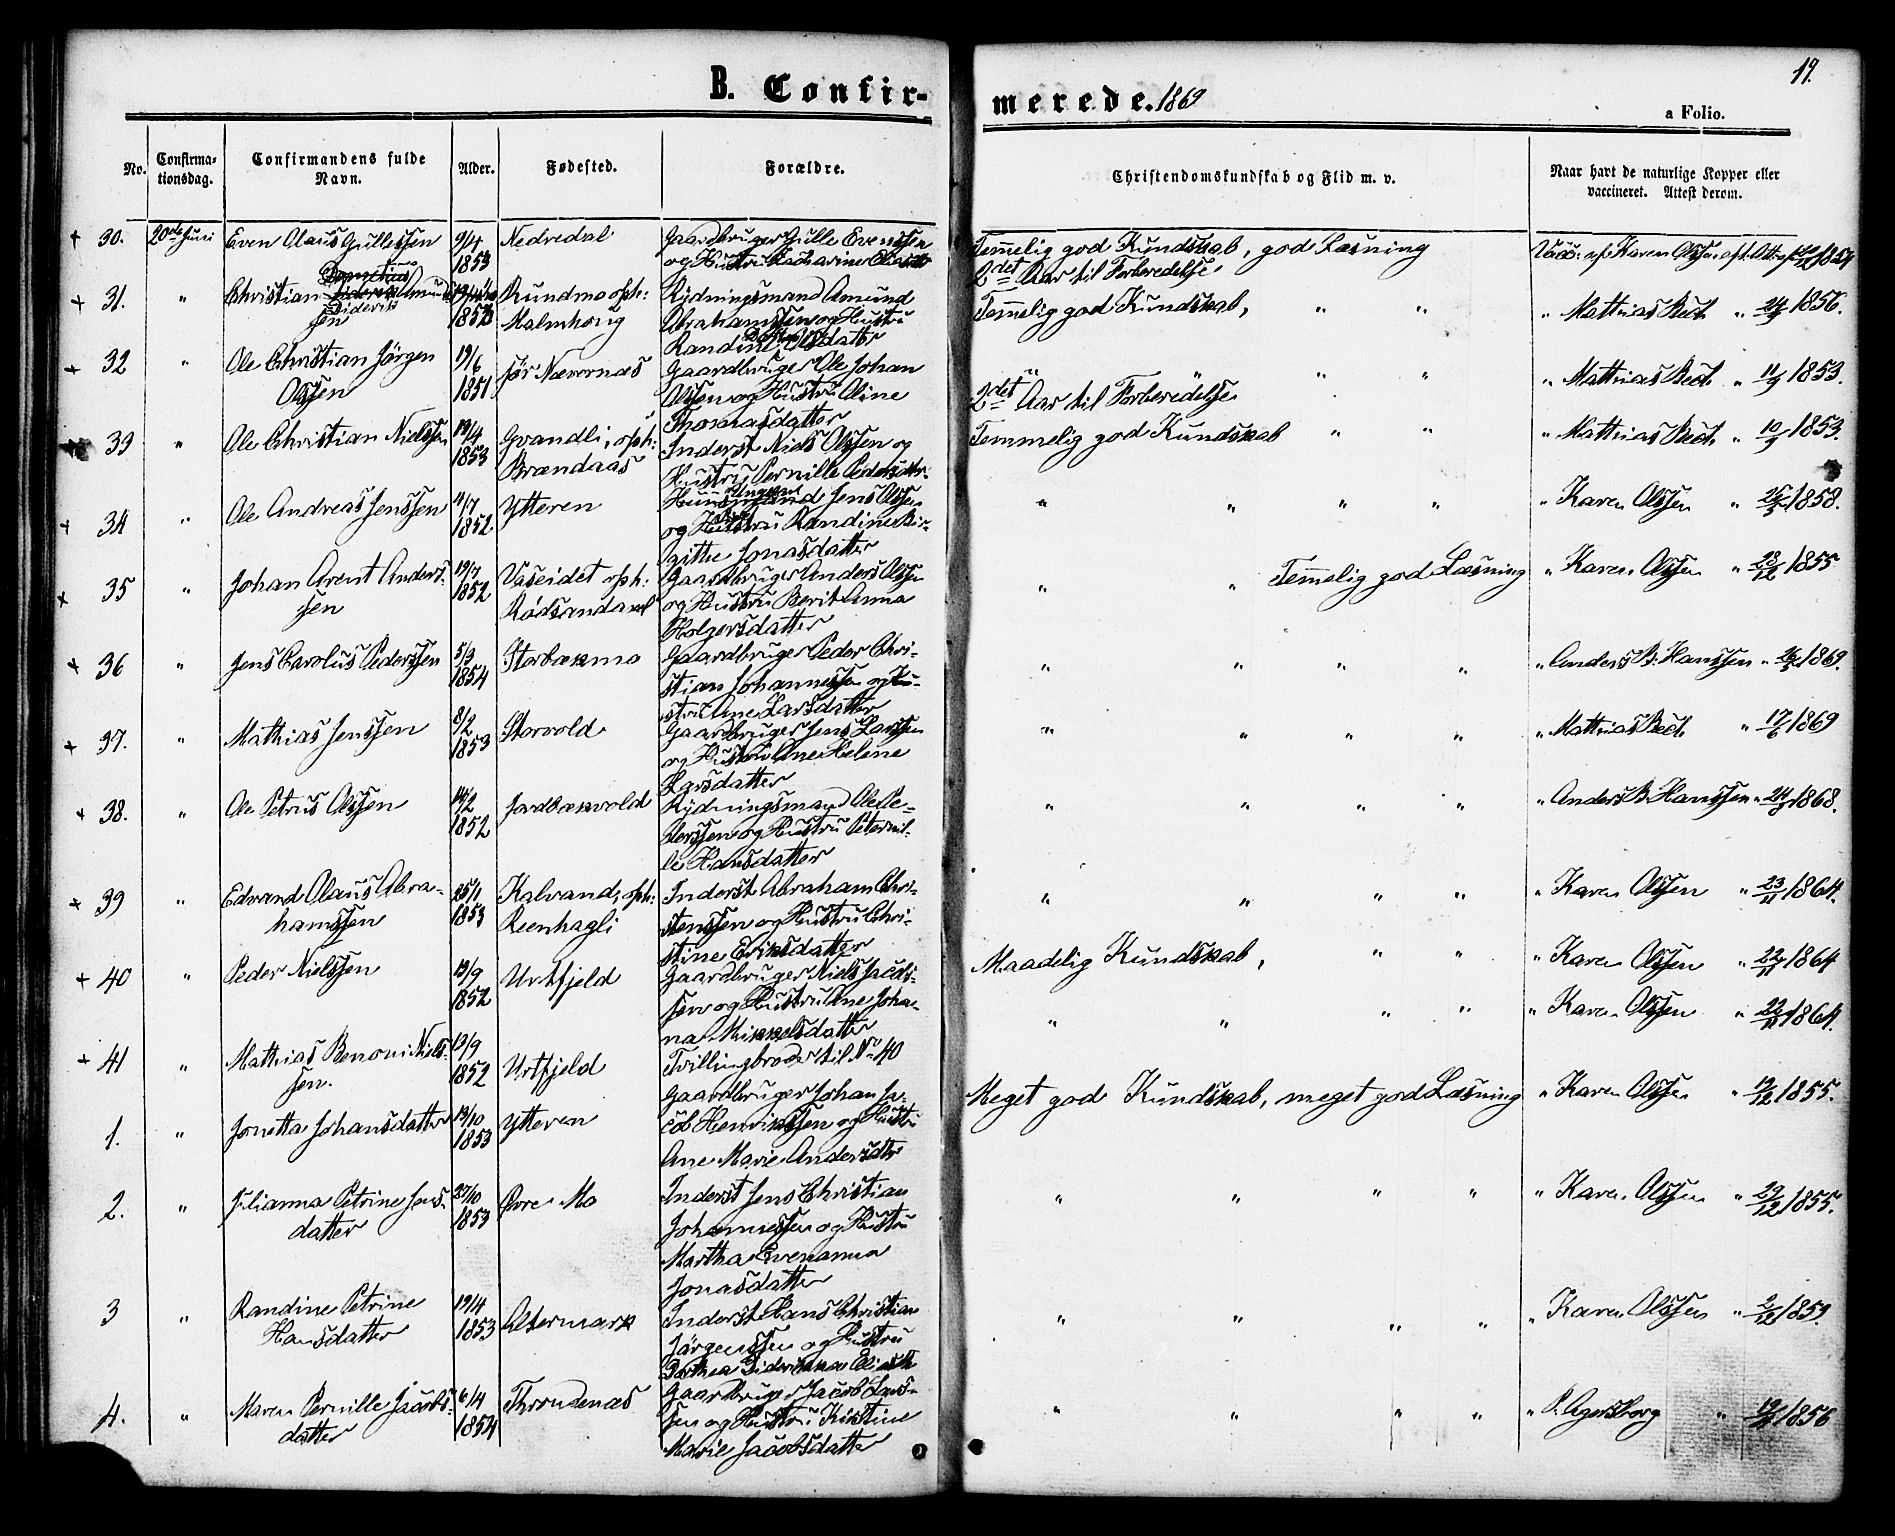 B. Confir-
merede. 1869
19.
a Folio.
No.
Confirma-
tionsdag.
Confirmandens fulde
Navn.
Alder.
Fødested.
Forældre.
Christendomskundskab og Flid m. v.
Naar havt de naturlige Kopper eller
vaccineret. Attest derom.
30. 20de Juni Even Olaus Gullessen 9/4 1853 Nedredal
Gaardbruger Gulle Evenssen
og Hustru
Temmelig god Kundskab, god Læsning
2det Aar til Forberedelse
Vacc. af Karen Olssen
31. " Christian
sen
Rundmo oph:
Malmhoug
Rydningsmand Amund
Abrahamssen og Hustru
Randine Olsdatter
Temmelig god Kundskab, " "
" Mathias Bech " 24/9 1856.
32 " Ole Christian Jörgen
Olssen
19/6
1851
Gaardbruger Ole Johan
Olssen og Hustru Oline
Thomasdatter
" " " "
2det Aar til Forberedelse
" Mathias Bech " 11/9 1853.
33 " Ole Christian Nielssen 19/4
1853
oph:
Brændaas
Inderst Niels Olssen og
Hustru Pernille Pedersdtr.
Temmelig god Kundskab " "
" Mathias Bech " 10/9 1853.
34 " Ole Andreas Jenssen 4/7
1852
Ytteren
Jens Olssen
og Hustru Randine Bir-
gitthe Jonasdatter
" " " "
" Karen Olssen " 1858.
35 " Johan Arent Anders-
sen
19/7
1852
Vaseidet oph:
Rödsandaxel
Gaardbruger Anders Olssen
og Hustru Berit Anna
Holgersdatter
" " Temmelig god Læsning
" Karen Olssen " 28/12 1855
36 " Jens Carolus Pederssen 5/3
1854
Storbækmo
Gaardbruger Peder Chri-
stian Johannessen og Hu-
stru Ane Larsdatter
" " " "
" Anders B. Hanssen " 1869.
37. " Mathias Jenssen 8/2
1853
Storvold
Gaardbruger Jens Larssen
og Hustru Ane Helene
Larsdatter
" " " "
" Mathias Bech " 17/6 1869
38. " Ole Petrus Olssen 14/2
1852
Jordbækvold
Rydningsmand Ole Pe-
derssen og Hustru Peternil-
le Hansdatter
" " " "
" Anders B. Hanssen " 1868.
39 " Edvard Olaus Abra-
hamssen
25/1
1853
Kalvand, oph:
Reenhagli
Inderst Abraham Chri-
stenssen og Hustru Chri-
stine Eriksdatter
" " " "
" Karen Olssen " 23/11 1864.
40 " Peder Nielssen 19/9
1852
Urtfjeld
Gaardbruger Niels Jacob-
sen og Hustru Ane Joha-
na Mikkelsdatter
Maadelig Kundskab, " "
" Karen Olssen " 22/11 1864
41 " Mathias Benoni Niels-
sen.
19/9
1852
Urtfjeld
Tvillingbroder til No 40
" " " "
" Karen Olssen " 22/11 1864.
1. " Jonetta Johansdatter 13/10
1853
Ytteren
Gaardbruger Johan Ja-
cob Henrikssen og Hustru
Ane Marie Andersdtr
Meget god Kundskab, meget god Læsning
" Karen Olssen " 1855.
2. " Julianna Petrine Jens-
datter
27/10
1853
Övre Mo
Inderst Jens Christian
Johannessen og Hustru
Martha Evenanna
Jonasdatter
" " " "
" Karen Olssen " 29/12 1855.
3 " Randine Petrine
Hansdatter
19/4
1853
Altermark
Inderst Hans Christian
Jörgenssen og Hustru
Dorthea
" " " "
" Karen Olssen " 1859.
4. " Maren Pernille Jacobs-
datter
6/4
1854
Throndenæs
Gaardbruger Jacob Lars-
sen og Hustru Kistine
Marie Jacobsdatter
" " " "
" P. Agersborg " 1856